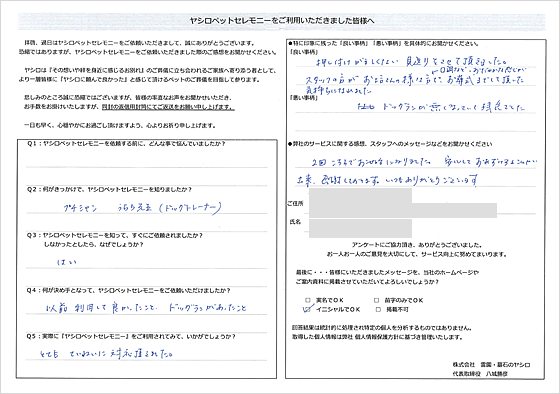 ヤシロペットセレモニーをご利用いただきました皆様へ
拝啓、過日はヤシロペットセレモニーをご依頼いただきまして、誠にありがとうございます。
恐縮ではありますが、ヤシロペットセレモニーをご依頼いただきました際のご感想をお聞かせください。
ヤシロは「その想いや絆を身近に感じるお別れ」のご葬儀に立ち会われるご家族へ寄り添う者として、
より一層皆様に「ヤシロに頼んで良かった」と感じて頂けるペットのご葬儀を目指してまいります。
悲しみのところ誠に恐縮ではございますが、皆様の率直なお声をお聞かせいただき、
お手数をお掛けいたしますが、同封の返信用封筒にてご返送をお願い申し上げます。
一日も早く、心穏やかにお過ごし頂けますよう、心よりお祈り申し上げます。
Q1:ヤシロペットセレモニーを依頼する前に、どんな事で悩んでいましたか?
Q2:何がきっかけで、ヤシロペットセレモニーを知りましたか?
プチシャン
先生(ドッグトレーナー)
Q3:ヤシロペットセレモニーを知って、すぐにご依頼されましたか?
しなかったとしたら、なぜでしょうか?
はい
Q4:何が決め手となって、ヤシロペットセレモニーをご依頼いただけましたか?
以前 利用して良かったこと、ドッグランがあったこと
Q5:実際に『ヤシロペットセレモニー』をご利用されてみて、いかがでしょうか?
とても ていねいに 対応頂きました。
●特に印象に残った「良い事柄」「悪い事柄」を具体的にお聞かせください。
「良い事柄」
スタッフの方が お坊さんの様な方で、お葬式までして頂った
気持ちになれた
「悪い事柄」
ドッグランが 無くなっていて 残念でした
●弊社のサービスに関する感想、スタッフへのメッセージなどをお聞かせください
2回 こちらでお世話になりました。安心して
出来、感謝しております。いつもありがとうございます
ご住所
氏名
アンケートにご協力頂き、ありがとうございました。
お一人お一人のご意見を大切にして、サービス向上に努めてまいります。
最後に・・・皆様にいただきましたメッセージを、当社のホームページや
ご案内資料に掲載させていただいてよろしいでしょうか?
□ 実名でOK □ 苗字のみでOK
☑ イニシャルでOK □ 掲載不可
回答結果は統計的に処理され特定の個人を分析するものではありません。
取得した個人情報は弊社 個人情報保護方針に基づき管理いたします。
株式会社 霊園・墓石のヤシロ
代表取締役 八城勝彦